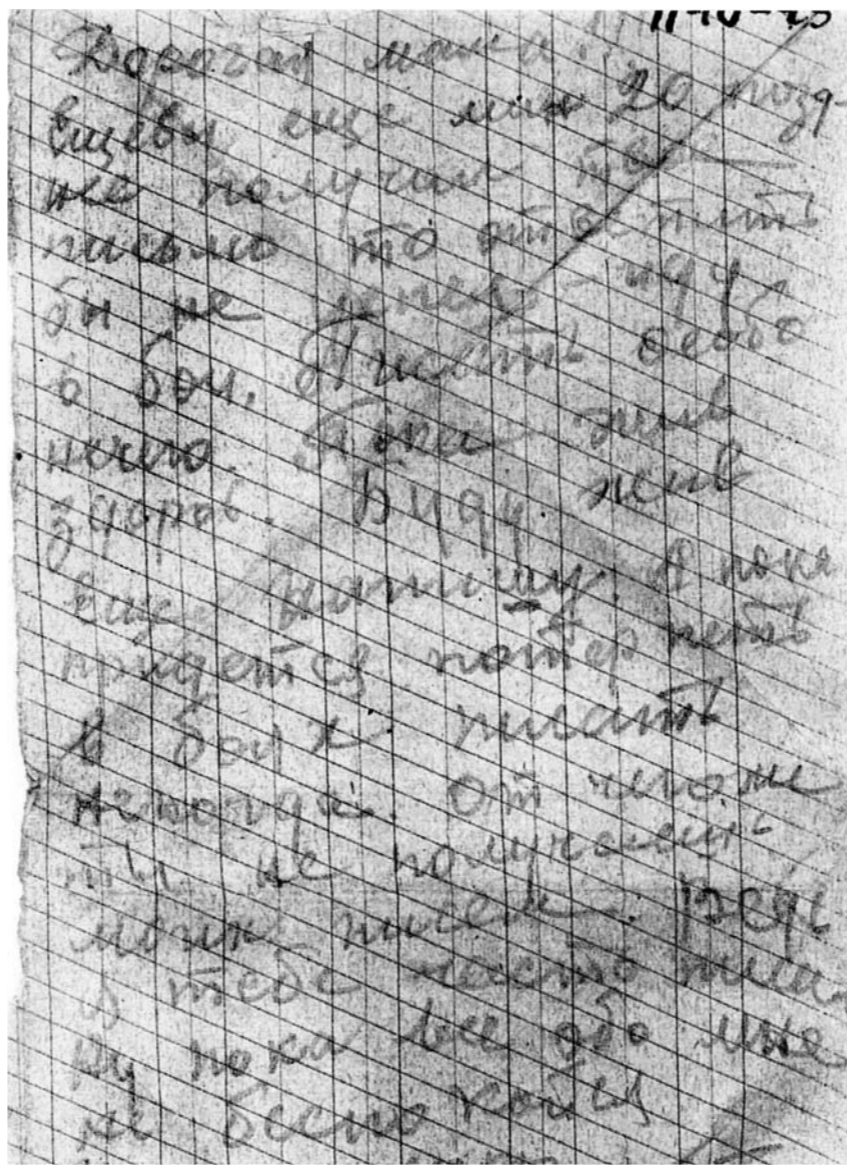 11-10-43
Дорогая мама!!!
еще мин 20 позд
же получил твое
письмо то ответить
бы не успел – иду
в бой. Писать особо
нечего. Пока жив
здоров. Буду жив
еще напишу. А пока
придется потерпеть
в боях писать
некогда. От чего же
ты не получаешь
моих писем. Ведь
я тебе часто пишу
ну пока все обо мне
не беспокойся